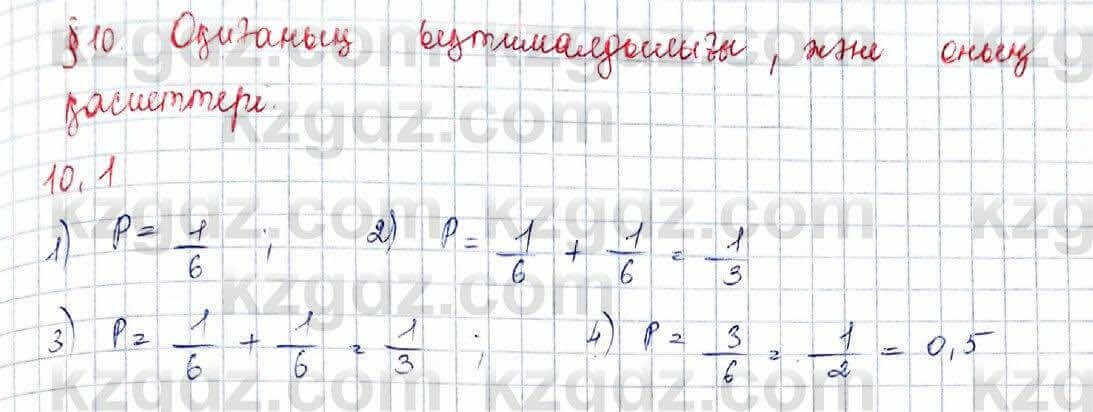 § 10. Оқиғаның ықтималдылығы, және оның
қасиеттері.
10.1
1) P = 1/6 ; 2) P = 1/6 + 1/6 = 1/3
3) P = 1/6 + 1/6 = 1/3 ; 4) P = 3/6 = 1/2 = 0,5
kzgdz.com